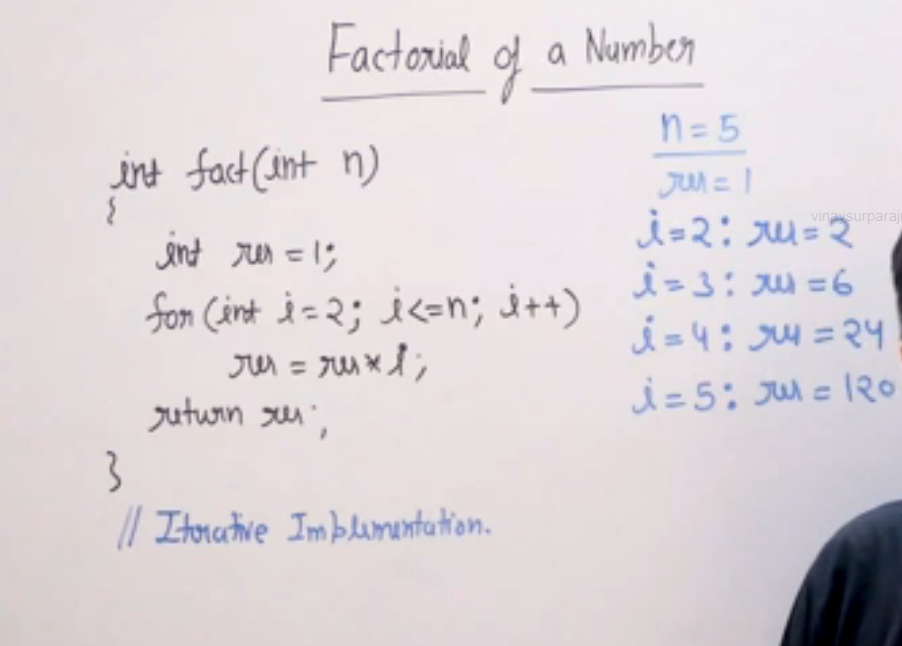 Factorial of a Number
int fact(int n)
{
int res = 1;
for (int i=2; i<=n; i++)
res = res * i;
return res;
}
// Iterative Implementation.
n = 5
res = 1
i=2: res = 2
i=3: res = 6
i=4: res = 24
i=5: res = 120
vinaysurparaju